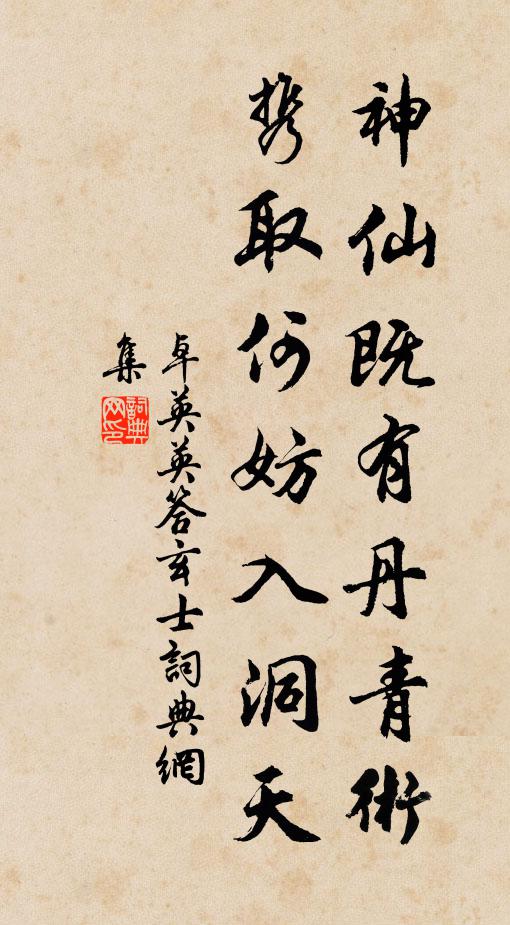 神仙既有丹青術
携取何妨入洞天
卓英英答玄士詞典網
集
詞典
网印